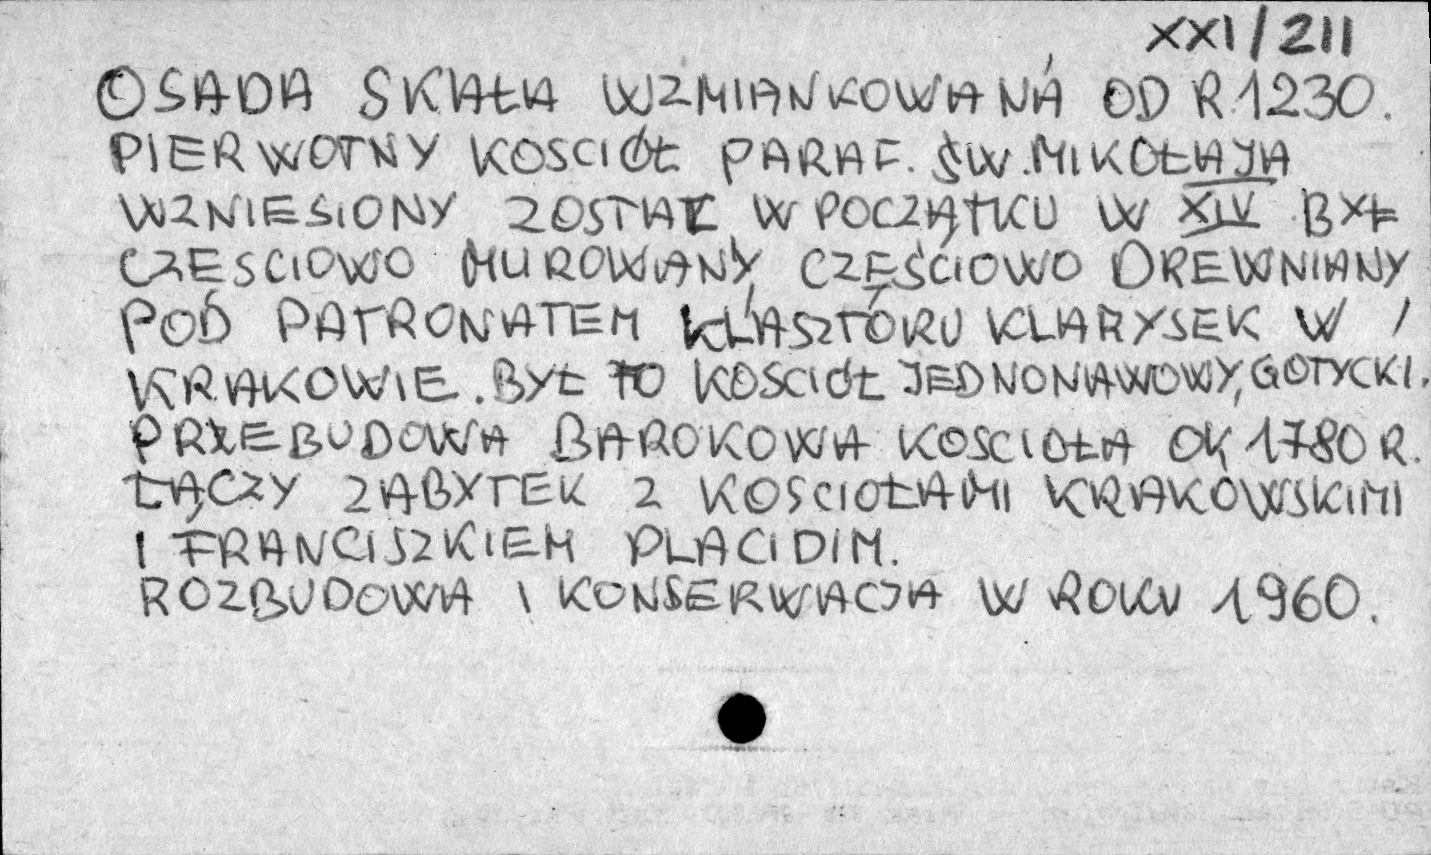 XXI/211
OSADA SKAŁA WZMIANKOWANA OD R.1230.
PIERWOTNY KOSCIÓŁ PARAF. ŚW. MIKOŁAJA
WZNIESIONY ZOSTAŁ W POCZĄTKU W XIV BYŁ
CZESCIOWO MUROWANY, CZĘŚCIOWO DREWNIANY
POD PATRONATEM KLASZTORU KLARYSEK W
KRAKOWIE. BYŁ TO KOSCIÓŁ JEDNONAWOWY, GOTYCKI.
PRZEBUDOWA BAROKOWA KOSCIOŁA OK 1780 R.
ŁĄCZY ZABYTEK Z KOSCIOŁAMI KRAKOWSKIMI
I FRANCISZKIEM PLACIDIM.
ROZBUDOWA I KONSERWACJA W ROKU 1960.